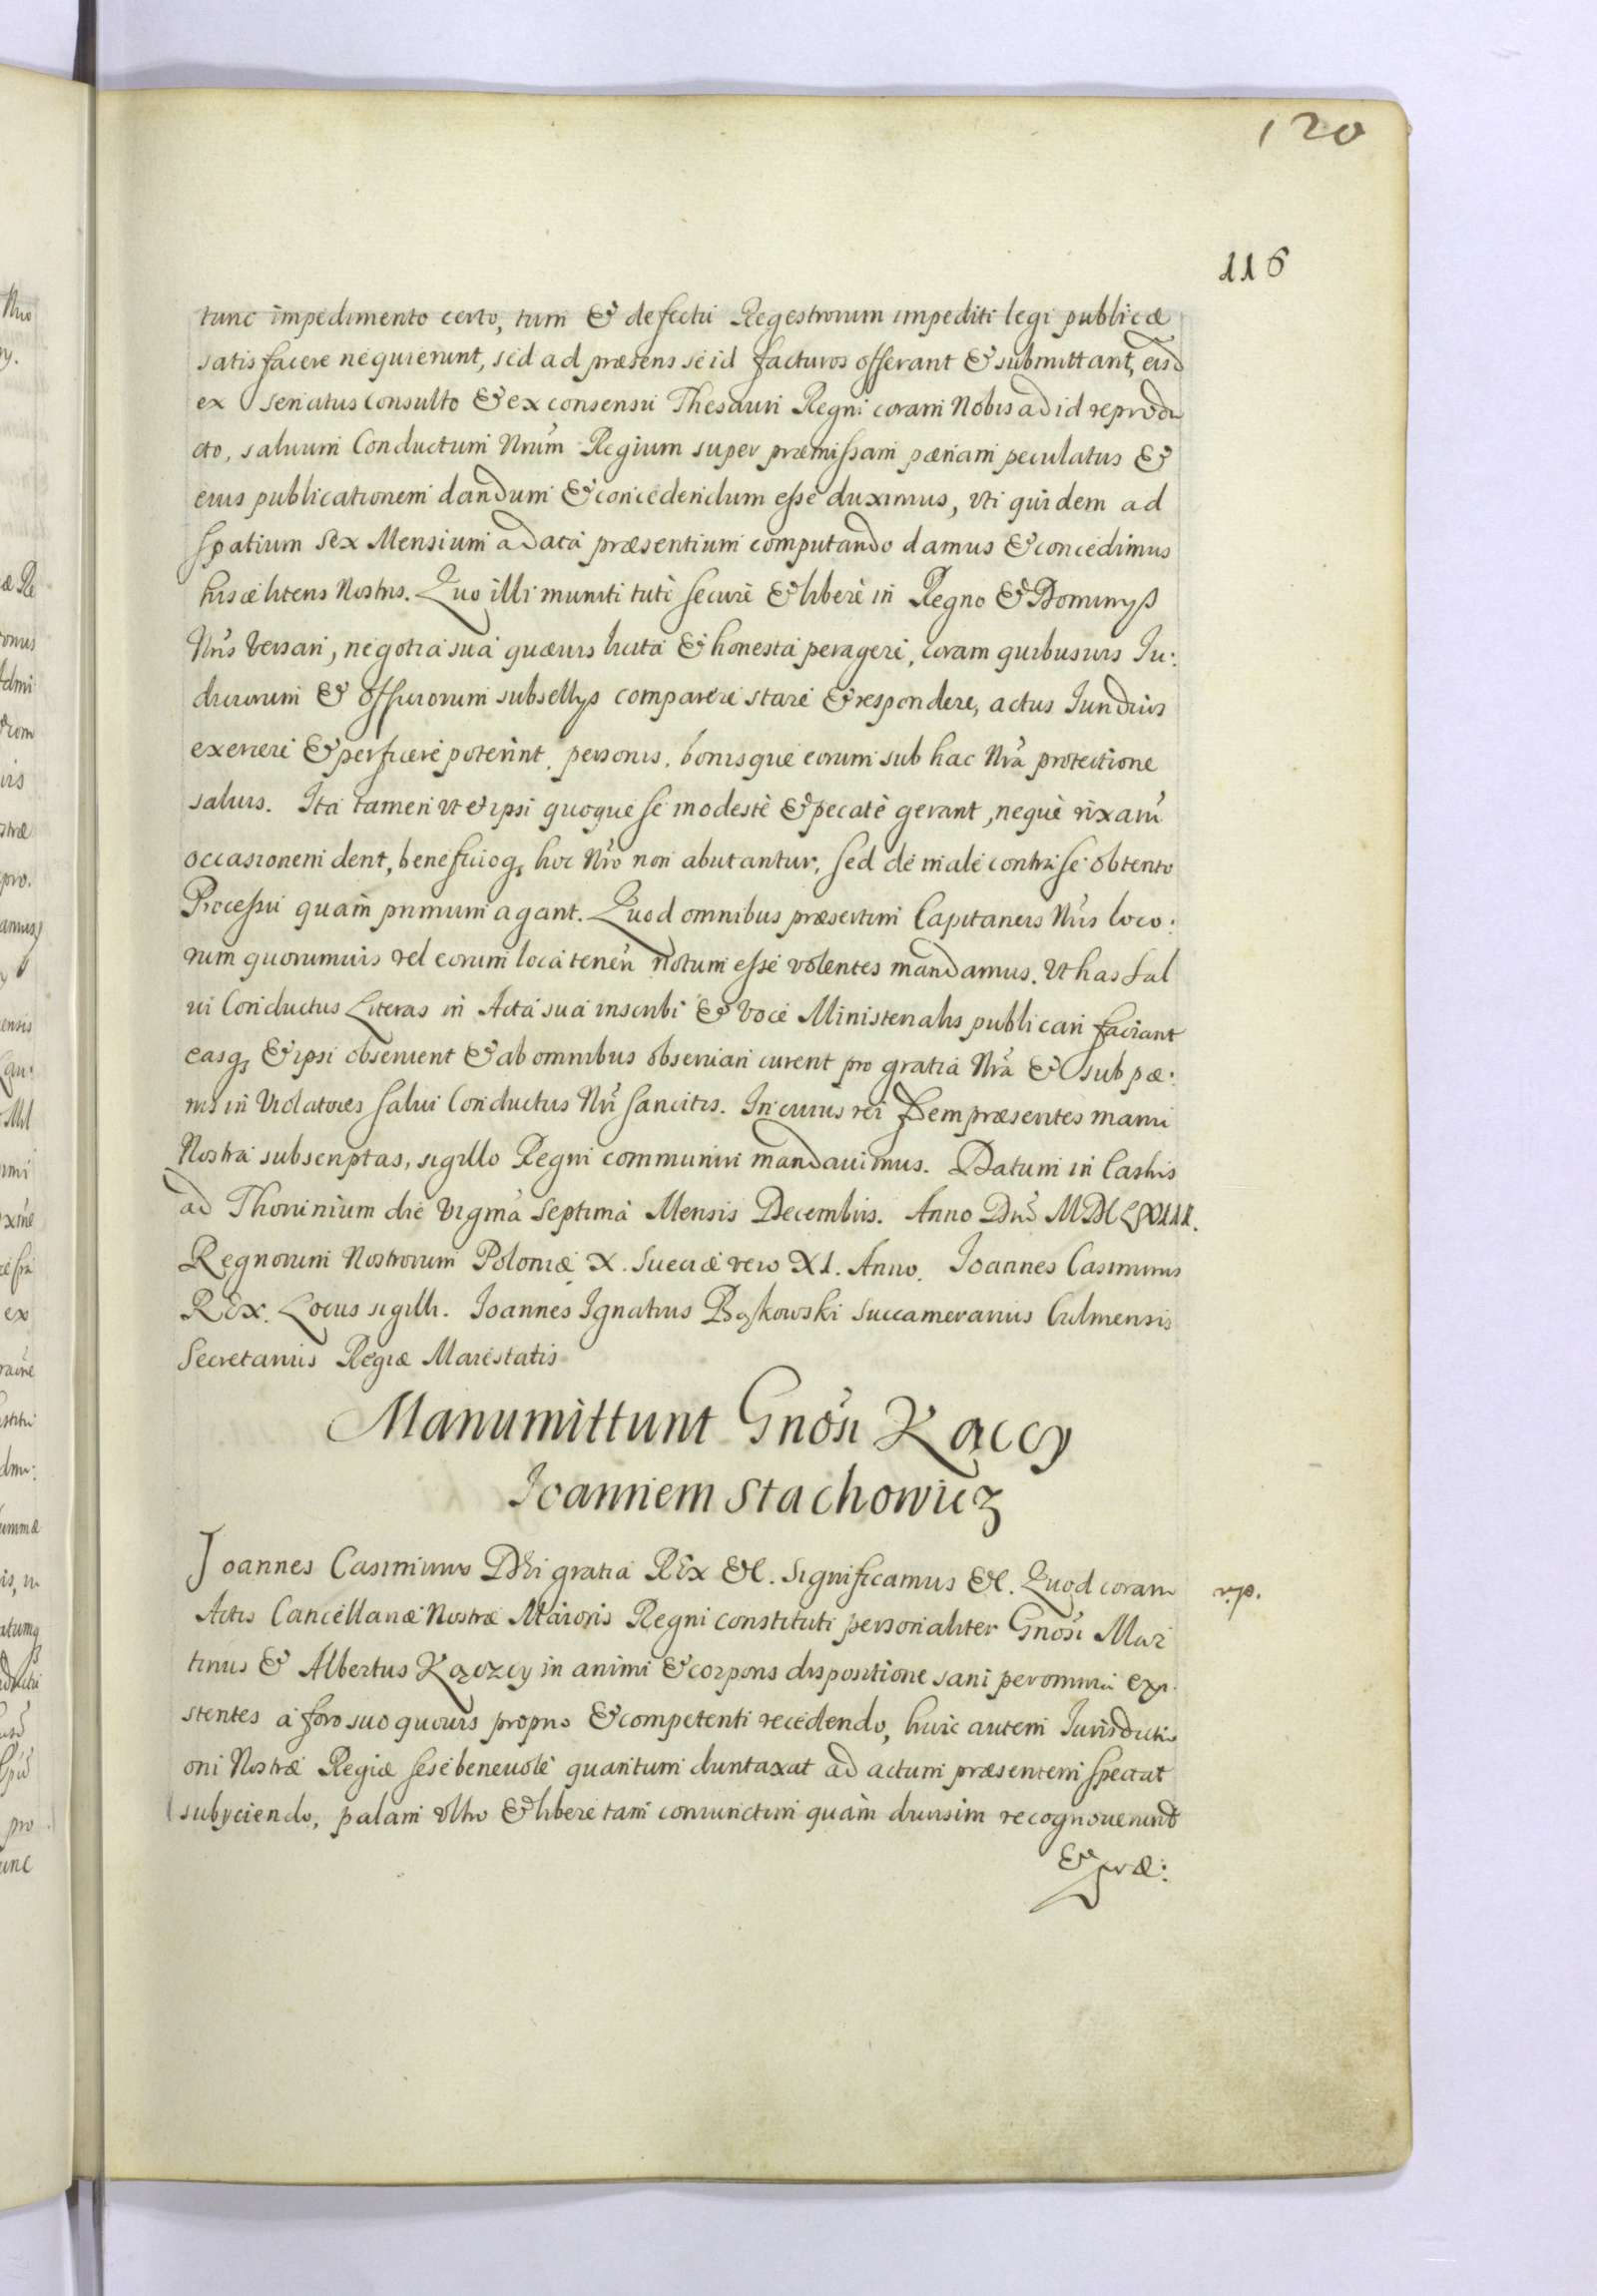 120
116
tunc impedimento certo, tum & defectu Regestrorum impediti legi publicæ
satisfacere nequierunt, sed ad præsens se id facturos offerant & submittant, eisd
ex Senatus Consulto & ex consensu Thesauri Regni coram Nobis ad id reprodu
cto, saluum Conductum Nrūm Regium super præmissam pænam peculatus &
eius publicationem dandum & concedendum esse duximus, vti quidem ad
spatium sex Mensium a data præsentium computando damus & concedimus
hisce literis Nostris. Quo illi muniti tutè securè & liberè in Regno & Dominys
Nrīs versari, negotia sua quæuis licita & honesta peragere, coram quibusuis Iu:
diciorum & officiorum subsellys comparere stare & respondere, actus Iuridicos
exercere & perficere poterint, personis, bonisque eorum sub hac Nrā protectione
saluis. Ita tamen vt & ipsi quoque se modestè & pecatè gerant, neque rixarū
occasionem dent, beneficioq, hoc Nrō non abutantur, sed de male contra se obtento
Processu quàm primum agant. Quod omnibus præsertim Capitaneis Nrīs loco:
rum quorumuis vel eorum loca tenēn notum esse volentes mandamus. Vt has Sal
ui Conductus Literas in Acta sua inscribi & voce Ministerialis publicari faciant
easq, & ipsi obseruent & ab omnibus obseruari curent pro gratia Nrā & sub pæ:
nis in Violatores salui Conductus Nrī sancitis. In cuius rei fidem præsentes manu
Nostra subscriptas, sigillo Regni communiri mandauimus. Datum in Castris
ad Thorunium die Vigmā Septima Mensis Decembris. Anno Dnī MDCLVIII.
Regnorum Nostrorum Poloniæ X. Sueciæ vero XI. Anno. Ioannes Casimirus
REx. Locus sigilli. Ioannes Ignatius Bąkowski Succamerarius Culmensis
Secretarius Regiæ Maiestatis
Manumittunt Gnōsi Kaccy
Ioannem Stachowicz
Ioannes Casimirus DEi gratia REx &c. Significamus &c. Quod coram
Actis Cancellariæ Nostræ Maioris Regni constituti personaliter Gnōsi Mar
tinus & Albertus Kączcy in animi & corporis dispositione sani per omnia exi
stentes à foro suo quouis proprio & competenti recedendo, huic autem Iurisdicti
oni Nostræ Regiæ sese beneuole quantum duntaxat ad actum præsentem spectat
subyciendo, palam vltro & libere tam coniunctim quàm diuisim recognouerunt
& præ: